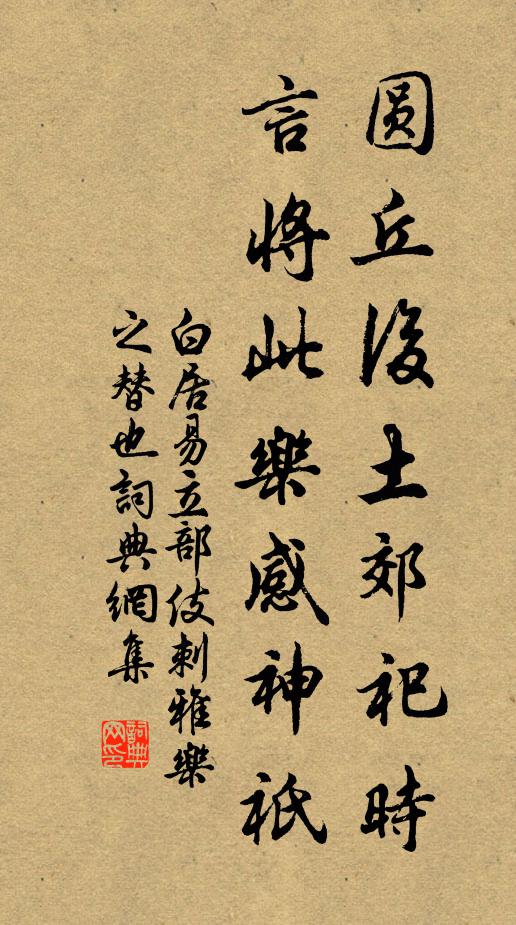 圓丘後土郊祀時
言將此樂感神祇
白居易立部伎刺雅樂
之替也詞典網集
詞典
网印